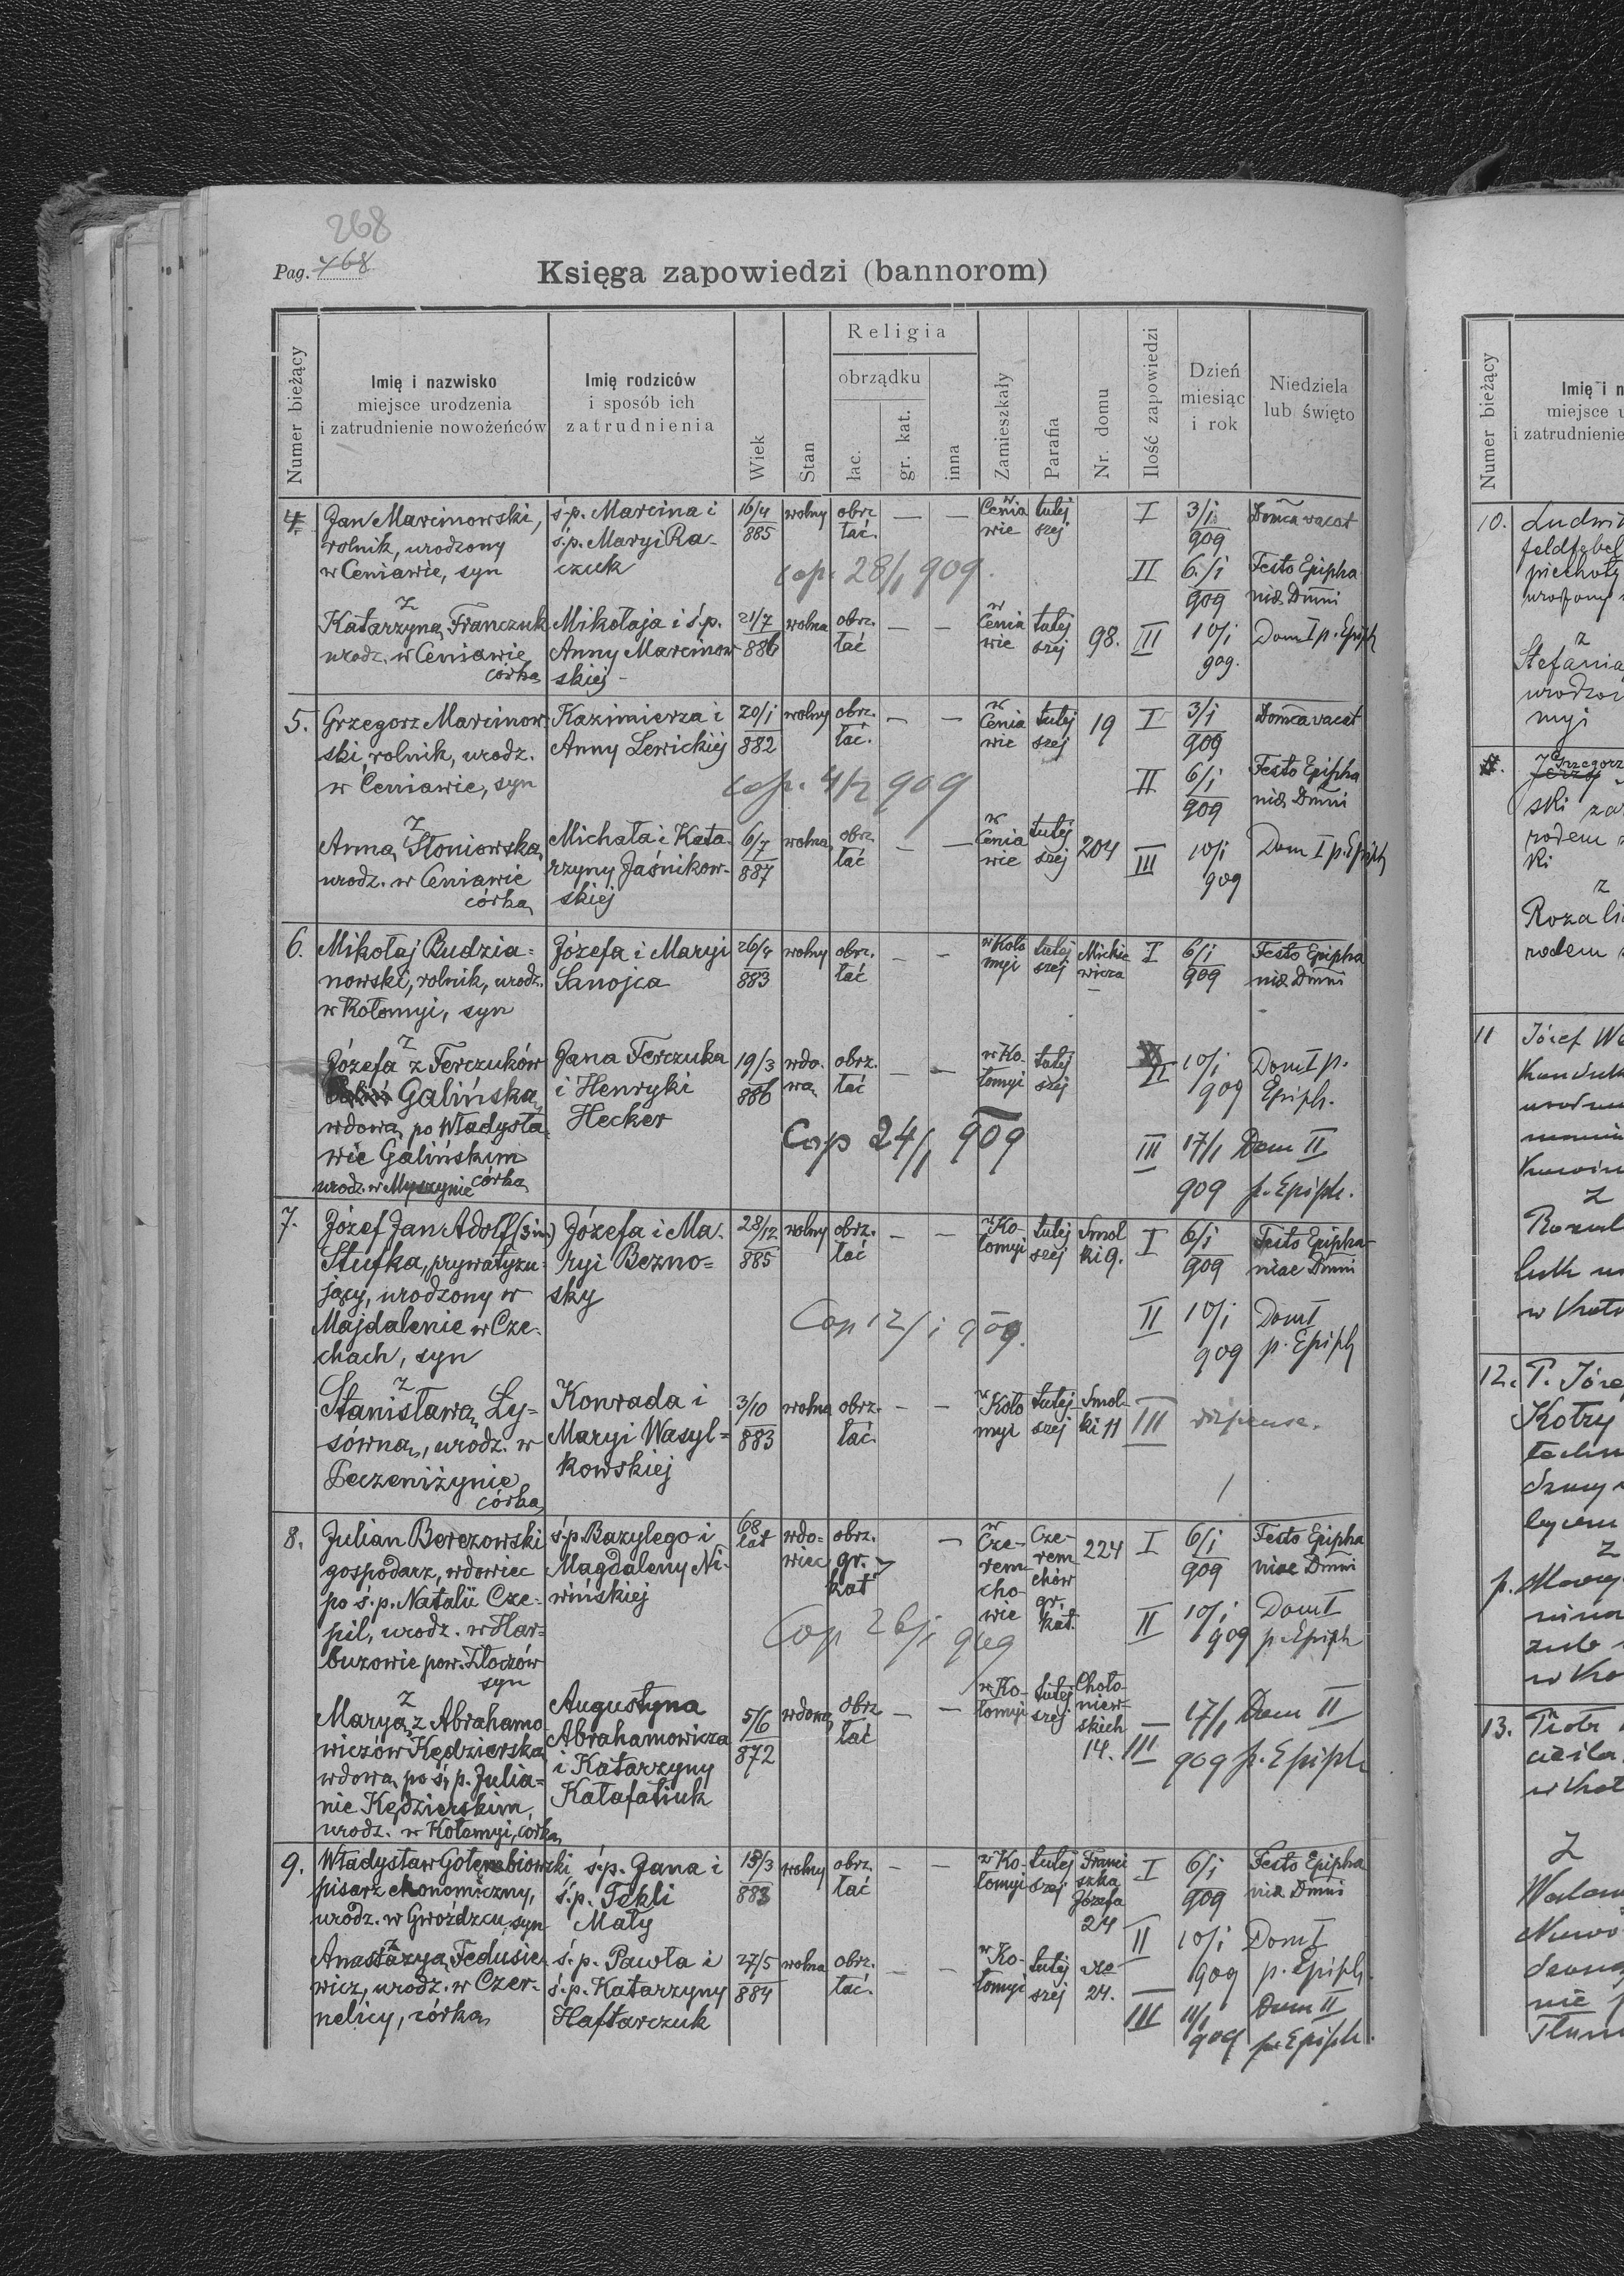 268
Pag. 468
Księga zapowiedzi (bannorom)
Numer bieżący
Imię i nazwisko
miejsce urodzenia
i zatrudnienie nowożeńców
Imię rodziców
i sposób ich
zatrudnienia
Wiek
Stan
Religia
obrządku
łac.
gr. kat.
inna
Zamieszkały
Parafia
Nr. domu
Ilość zapowiedzi
Dzień
miesiąc
i rok
Niedziela
lub święto
4.
Jan Marcinowski,
rolnik, urodzony
w Ceniawie, syn
ś.p. Marcina i
ś.p. Maryi Ra-
czuk
16/4
885
wolny
obrz
łać.
— —
w
Cenia
wie
tutej
szej
I
3/i
909
Domca vacat
cop. 28/1 909.
II
6./i
909
Festo Epipha
nia Dmni
z
Katarzyna Franczuk
urodz. w Ceniawie
córka
Mikołaja i ś.p.
Anny Marcinow
skiej -
21/7
886
wolna
obrz.
łać
— —
w
Cenia
wie
tutej
szej
98.
III
10/i
909.
Dom I p. Epiph
5.
Grzegorz Marcinow
ski, rolnik, urodz.
w Ceniawie, syn
Kazimierza i
Anny Lewickiej
20/i
882
wolny
obrz.
łac.
— —
w
Cenia
wie
tutej
szej
19
I
3/i
909
Domca vacat
cop. 4/2 909
II
6/i
909
Festo Epipha
nia Dmni
z
Anna Słoniowska,
urodz. w Ceniawie
córka
Michała i Kata
rzyny Jaśnikow-
skiej
6/7
887
wolna
obrz.
łać
— —
w
Cenia
wie
tutej
szej
204
III
10/i
909
Dom I p. Epiph
6.
Mikołaj Budzia=
nowski, rolnik, urodz.
w Kołomyi, syn
Józefa i Maryi
Sanojca
26/4
883
wolny
obrz.
łać
— -
w Koło
myi
tutej
szej
Mickie
wicza
I
6/i
909
Festo Epipha
nia Dmni
z
Józefa z Ferczuków
Galińska
wdowa po Władysła
wie Galińskim
urodz. w Myszynie córka
Jana Ferczuka
i Henryki
Hecker
19/3
886
wdo.
wa
obrz.
łać
— —
w Ko-
łomyi
tutej
szej
II
10/i
909
Dom I p.
Epiph.
Cop 24/1 909
III
17/1
909
Dom II
p. Epiph.
7.
Józef Jan Adolf (3 im.)
Stufka, prywatyzu-
jący, urodzony w
Majdalenie w Cze-
chach, syn
Józefa i Ma-
ryi Bezno=
sky
28/12
885
wolny
obrz.
łać
— —
w Ko-
łomyi
tutej
szej
Smol
ki 9.
I
6/i
909
Festo Epipha-
niae Dmni
Cop 12/i 909.
II
10/i
909
Dom I
p. Epiph
z
Stanisława Ły=
sówna, urodz. w
Peczeniżynie
córka
Konrada i
Maryi Wasyl=
kowskiej
3/10
883
wolna
obrz.
łać.
— —
w
Koło
myi
tutej
szej
Smol-
ki 11
III
dispensa.
8.
Julian Berezowski
gospodarz, wdowiec
po ś.p. Natalii Cze-
pil, urodz. w Har=
buzowie pow. Złoczów
syn
ś.p. Bazylego i
Magdaleny Ni-
wińskiej
68
lat
wdo-
wiec
obrz.
gr.
kat
—
w
Cze-
rem
cho-
wie
Cze-
rem
chów
gr.
kat.
224
I
6/i
909
Festo Epipha
niae Dmni
Cop 26/i 909
II
10/i
909
Dom I
p. Epiph
z
Marya z Abrahamo
wiczów Kędzierska
wdowa po ś. p. Julia=
nie Kędzierskim,
urodz. w Kołomyi, córka
Augustyna
Abrahamowicza
i Katarzyny
Katafatiuk
5/6
872
wdowa
obrz
łać
— —
w Ko-
łomyi
tutej
szej
Choło-
niew-
skich
14.
III
17/1
909
Dom II
p. Epiph
9.
Władysław Gołembiowski
pisarz ekonomiczny,
urodz. w Gwoźdzcu, syn
ś.p. Jana i
ś.p. Tekli
Mały
15/3
883
wolny
obrz.
łać
— —
w Ko-
łomyi
tutej
szej
Franci
szka
Józefa
24
I
6/i
909
Festo Epipha
nia Dmni
II
10/i
909
Dom I
p. Epiph.
z
Anastazya Fedusie
wicz, urodz. w Czer-
nelicy, córka
ś.p. Pawła i
ś.p. Katarzyny
Haftarczuk
27/5
884
wolna
obrz.
łać.
— —
w Ko-
łomyi
tutej
szej
24.
III
909
Dom II
p. Epiph.
Numer bieżący
Imię i n
miejsce u
i zatrudnienie
10.
Ludwi
feldfebel
piechoty
z
Stefania
urodzo
myi
Grzegorz
ski za
rodem
ki
z
Rozali
rodem
11
Józef
z
12.
P. Józe
Kotry
z
13.
Piotr
cieśla
z